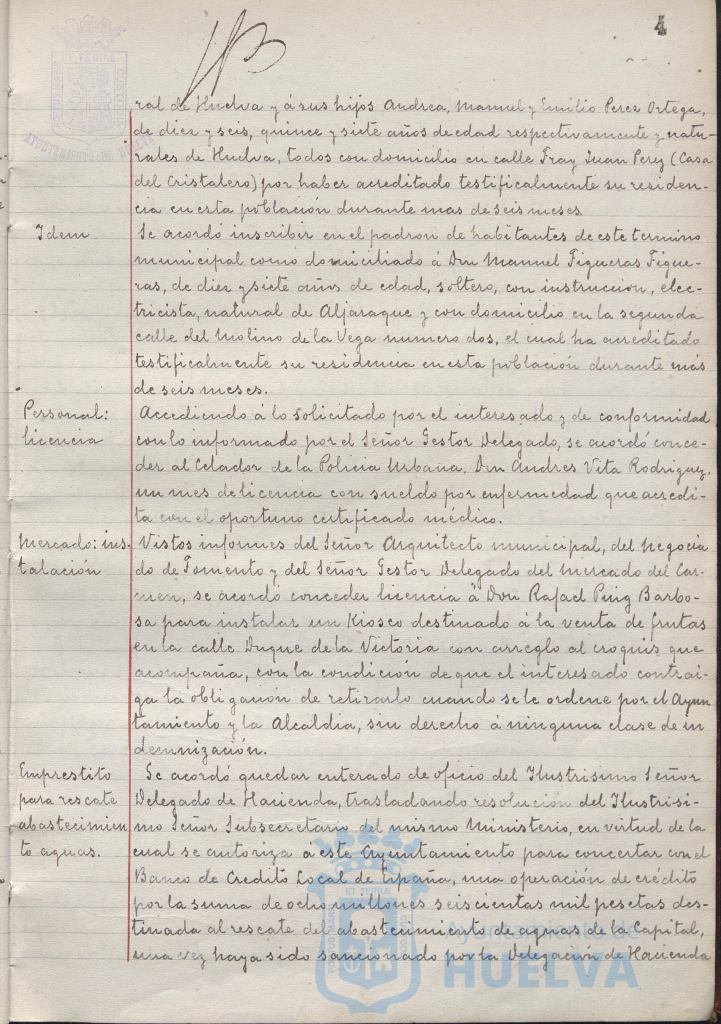 4
ral de Huelva y á sus hijos Andrea, Manuel y Emilio Perez Ortega,
de diez y seis, quince y siete años de edad respectivamente y natu-
rales de Huelva, todos con domicilio en calle Fray Juan Perez (Casa
del Cristalero) por haber acreditado testificalmente su residen-
cia en esta población durante mas de seis meses
Idem
Se acordó inscribir en el padron de habitantes de este termino
municipal como domiciliado á Don Manuel Figueras Figue-
ras, de diez y siete años de edad, soltero, con instrucion, elec-
tricista, natural de Aljaraque y con domicilio en la segunda
calle del Molino de la Vega numero dos, el cual ha acreditado
testificalmente su residencia en esta población durante más
de seis meses.
Personal:
licencia
Accediendo á lo solicitado por el interesado y de conformidad
con lo informado por el Señor Gestor Delegado, se acordó conce-
der al Celador de la Policia Urbana, Don Andres Vita Rodriguez,
un mes de licencia con sueldo por enfermedad que acredi-
ta con el oportuno certificado médico.
Mercado: ins-
talación
Vistos informes del Señor Arquitecto municipal, del Negocia
do de Fomento y del Señor Gestor Delegado del Mercado del Car-
men, se acordó conceder licencia á Don Rafael Puig Barbo-
sa para instalar un Kiosco destinado á la venta de frutas
en la calle Duque de la Victoria con arreglo al croquis que
acompaña, con la condición de que el interesado contrai-
ga la obligación de retirarlo cuando se le ordene por el Ayun
tamiento y la Alcaldia, sin derecho á ninguna clase de in
demnización.
Emprestito
para rescate
abastecimien
to aguas.
Se acordó quedar enterado de oficio del Ilustrisimo Señor
Delegado de Hacienda, trasladando resolución del Ilustrisi-
mo Señor Subsecretario del mismo Ministerio, en virtud de la
cual se autoriza a este Ayuntamiento para concertar con el
Banco de Credito Local de España, una operación de crédito
por la suma de ocho millones seiscientas mil pesetas des-
tinada al rescate del abastecimiento de aguas de la Capital,
una vez haya sido sancionado por la Delegación de Hacienda
Ayuntamiento de
HUELVA